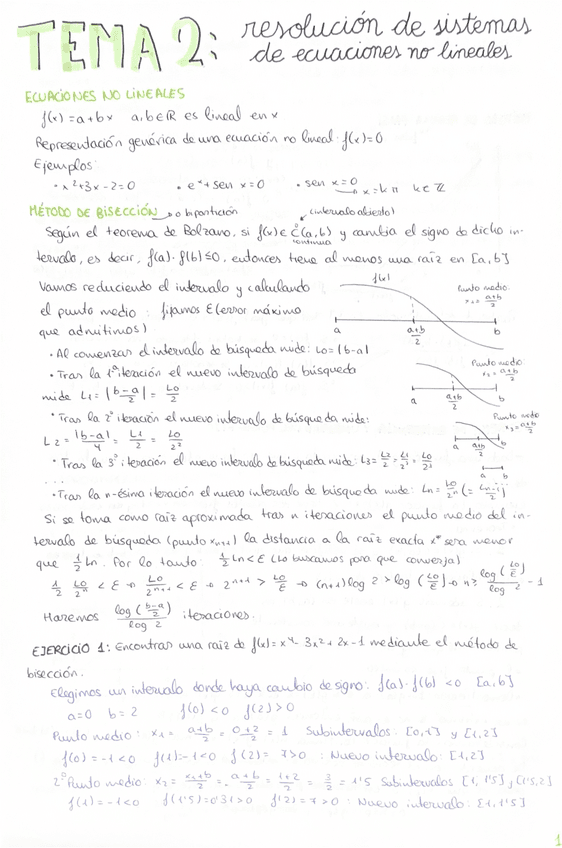 TEMA 2: resolución de sistemas
de ecuaciones no lineales
ECUACIONES NO LINEALES
f(x) = a+bx a,b∈R es lineal en x
Representación genérica de una ecuación no lineal: f(x)=0
Ejemplos:
• x²+3x-2=0 • eˣ+sen x=0 • sen x=0
→ x=kπ k∈Z
MÉTODO DE BISECCIÓN → o bipartición (intervalo abierto)
Según el teorema de Bolzano, si f(x)∈C(a,b) y cambia el signo de dicho in-
continua
tervalo, es decir, f(a)·f(b)≤0, entonces tiene al menos una raíz en [a,b]
Vamos reduciendo el intervalo y calculando
el punto medio: fijamos E(error máximo
que admitimos)
f(x)
Punto medio:
x₁ = a+b/2
a a+b/2 b
• Al comenzar el intervalo de búsqueda mide: L₀=|b-a|
• Tras la 1ª iteración el nuevo intervalo de búsqueda
mide L₁ = |b-a/2| = L₀/2
Punto medio
x₂ = a+b/2
a a+b/2 b
• Tras la 2ª iteración el nuevo intervalo de búsqueda mide:
L₂ = |b-a|/4 = L₁/2 = L₀/2²
Punto medio
x₃ = a+b/2
a a+b/2 b
• Tras la 3ª iteración el nuevo intervalo de búsqueda mide: L₃ = L₂/2 = L₁/2² = L₀/2³
a b
...
• Tras la n-ésima iteración el nuevo intervalo de búsqueda mide: Lₙ = L₀/2ⁿ (= Lₙ₋ᵢ/2ⁱ)
Si se toma como raíz aproximada tras n iteraciones el punto medio del in-
tervalo de búsqueda (punto xₙ₊₁) la distancia a la raíz exacta x* será menor
que 1/2 Lₙ. Por lo tanto: 1/2 Lₙ < E (lo buscamos para que converja)
1/2 L₀/2ⁿ < E → L₀/2ⁿ⁺¹ < E → 2ⁿ⁺¹ > L₀/E → (n+1) log 2 > log (L₀/E) → n ≥ log (L₀/E)/log 2 - 1
Haremos log (b-a/2)/log 2 iteraciones.
EJERCICIO 1: Encontrar una raíz de f(x)=x⁴-3x²+2x-1 mediante el método de
bisección.
Elegimos un intervalo donde haya cambio de signo: f(a)·f(b) <0 [a,b]
a=0 b=2 f(0)<0 f(2)>0
Punto medio: x₁ = a+b/2 = 0+2/2 = 1 Subintervalos: [0,1] y [1,2]
f(0) = -1<0 f(1)=-1<0 f(2)= 7>0 : Nuevo intervalo: [1,2]
2º Punto medio: x₂ = x₁+b/2 = a+b/2 = 1+2/2 = 3/2 = 1'5 Subintervalos [1, 1'5] y [1'5,2]
f(1)=-1<0 f(1'5)=0'31>0 f(2)=7>0 : Nuevo intervalo: [1,1'5]
1